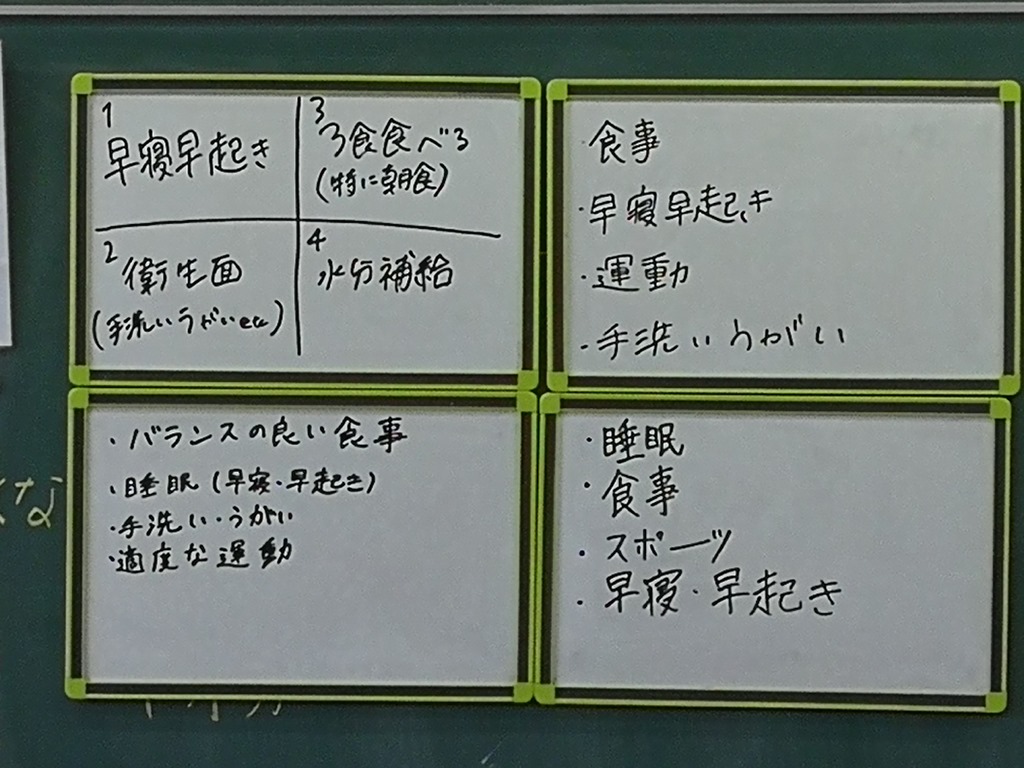 1
早寝早起き
2
衛生面
(手洗いうがいetc)
3
3食食べる
(特に朝食)
4
水分補給
・食事
・早寝早起き
・運動
・手洗いうがい
・バランスの良い食事
・睡眠(早寝・早起き)
・手洗い・うがい
・適度な運動
・睡眠
・食事
・スポーツ
・早寝・早起き
な